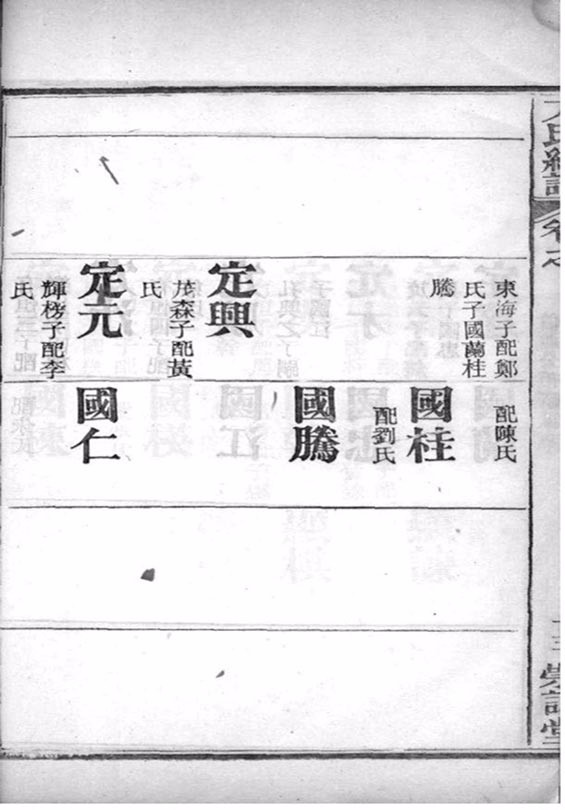 東海子配鄭
氏子國蘭桂
騰
定興
茂森子配黃
氏
定元
輝榜子配李
氏
配陳氏
國桂
配劉氏
國騰
國仁